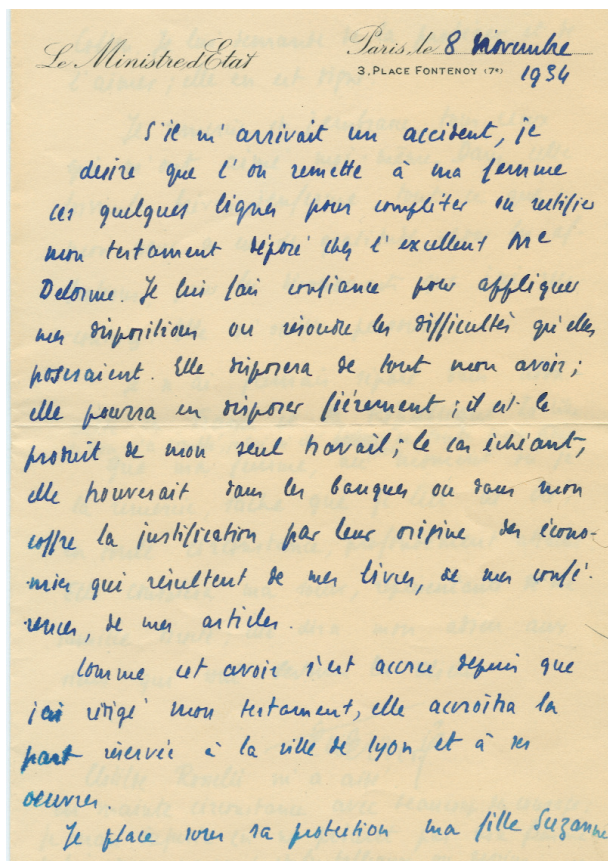 Le Ministre d'Etat
Paris, le 8 Novembre
3, PLACE FONTENOY (7e) 1934
S'il m'arrivait un accident, je
desire que l'on remette à ma femme
ces quelques lignes pour compléter ou rectifier
mon testament déposé chez l'excellent Me
Delorme. Je lui fais confiance pour appliquer
mes dispositions ou résoudre les difficultés qu'elles
poseraient. Elle disposera de tout mon avoir;
elle pourra en disposer fièrement; il est le
produit de mon seul travail; le cas échéant,
elle trouverait dans les banques ou dans mon
coffre la justification par leur origine des écono-
mies qui résultent de mes livres, de mes confé-
rences, de mes articles.
Comme cet avoir s'est accru depuis que
j'ai rédigé mon testament, elle accroîtra la
part réservée à la ville de Lyon et à ses
oeuvres.
Je place sous sa protection ma fille Suzanne